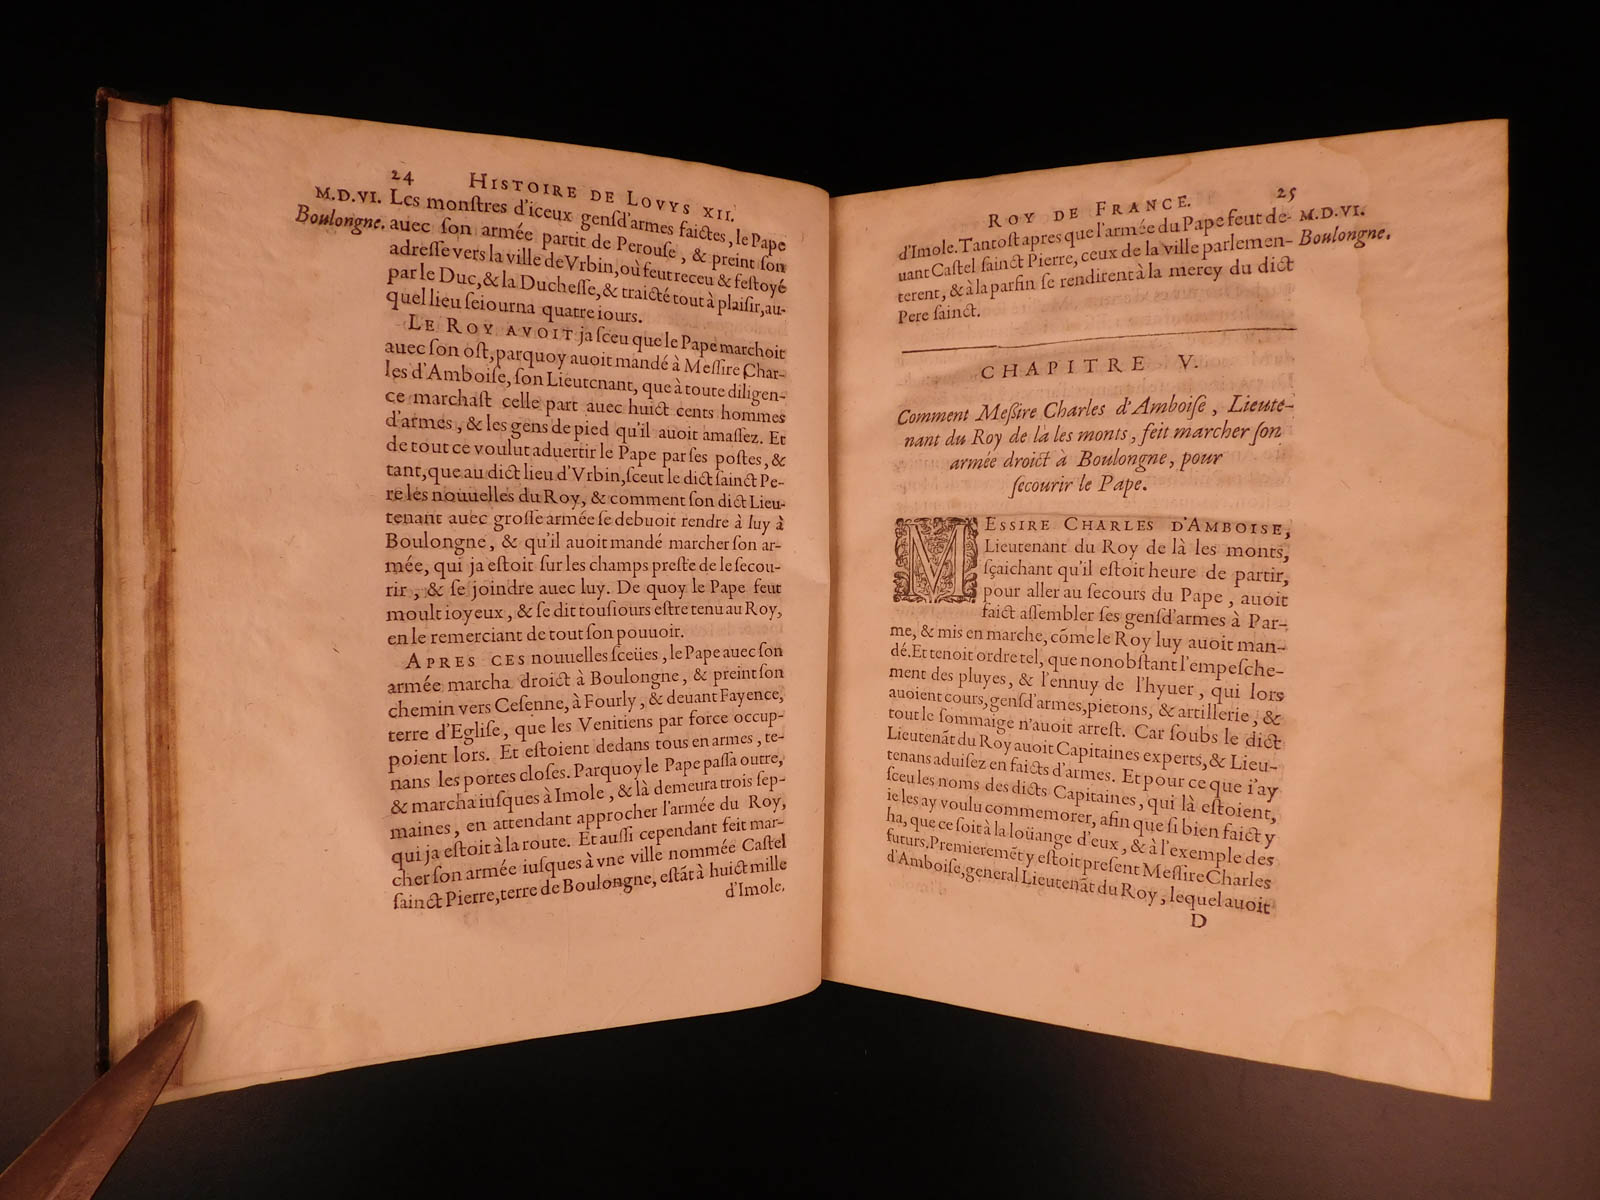 24 HISTOIRE DE LOVYS XII.
M.D.VI.
Boulongne.
Les monſtres d'iceux genſd'armes faictes, le Pape
auec ſon armée partit de Perouſe, & preint ſon
adreſſe vers la ville de Vrbin, où feut receu & feſtoyé
par le Duc, & la Ducheſſe, & traicté tout à plaiſir, au-
quel lieu ſeiourna quatre iours.
LE ROY AVOIT ja ſceu que le Pape marchoit
auec ſon oſt, parquoy auoit mandé à Meſſire Char-
les d'Amboiſe, ſon Lieutenant, que à toute diligen-
ce marchaſt celle part auec huict cents hommes
d'armes, & les gens de pied qu'il auoit amaſſez. Et
de tout ce voulut aduertir le Pape par ſes poſtes, &
tant, que au dict lieu d'Vrbin, ſceut le dict ſainct Pe-
re les nouuelles du Roy, & comment ſon dict Lieu-
tenant auec groſſe armée ſe debuoit rendre à luy à
Boulongne, & qu'il auoit mandé marcher ſon ar-
mée, qui ja eſtoit ſur les champs preſte de le ſecou-
rir, & ſe joindre auec luy. De quoy le Pape feut
moult ioyeux, & ſe dit touſiours eſtre tenu au Roy,
en le remerciant de tout ſon pouuoir.
APRES CES nouuelles ſceües, le Pape auec ſon
armée marcha droict à Boulongne, & preint ſon
chemin vers Ceſenne, à Fourly, & deuant Fayence,
terre d'Egliſe, que les Venitiens par force occup-
poient lors. Et eſtoient dedans tous en armes, te-
nans les portes cloſes. Parquoy le Pape paſſa outre,
& marcha iuſques à Imole, & là demeura trois ſep-
maines, en attendant approcher l'armée du Roy,
qui ja eſtoit à la route. Et auſſi cependant feit mar-
cher ſon armée iuſques à vne ville nommée Caſtel
ſainct Pierre, terre de Boulongne, eſtãt à huict mille
d'Imole.
ROY DE FRANCE. 25
M.D.VI.
Boulongne.
d'Imole. Tantoſt apres que l'armée du Pape feut de-
uant Caſtel ſainct Pierre, ceux de la ville parlemen-
terent, & à la parfin ſe rendirent à la mercy du dict
Pere ſainct.
CHAPITRE V.
Comment Meſſire Charles d'Amboiſe, Lieute-
nant du Roy de là les monts, feit marcher ſon
armée droict à Boulongne, pour
ſecourir le Pape.
MESSIRE CHARLES D'AMBOISE,
Lieutenant du Roy de là les monts,
ſçaichant qu'il eſtoit heure de partir,
pour aller au ſecours du Pape, auoit
faict aſſembler ſes genſd'armes à Par-
me, & mis en marche, cõme le Roy luy auoit man-
dé. Et tenoit ordre tel, que nonobſtant l'empeſche-
ment des pluyes, & l'ennuy de l'hyuer, qui lors
auoient cours, genſd'armes, pietons, & artillerie, &
tout le ſommaige n'auoit arreſt. Car ſoubs le dict
Lieutenãt du Roy auoit Capitaines experts, & Lieu-
tenans aduiſez en faicts d'armes. Et pour ce que i'ay
ſceu les noms des dicts Capitaines, qui là eſtoient,
ie les ay voulu commemorer, afin que ſi bien faict y
ha, que ce ſoit à la loüange d'eux, & à l'exemple des
futurs. Premieremẽt y eſtoit preſent Meſſire Charles
d'Amboiſe, general Lieutenãt du Roy, lequel auoit
D